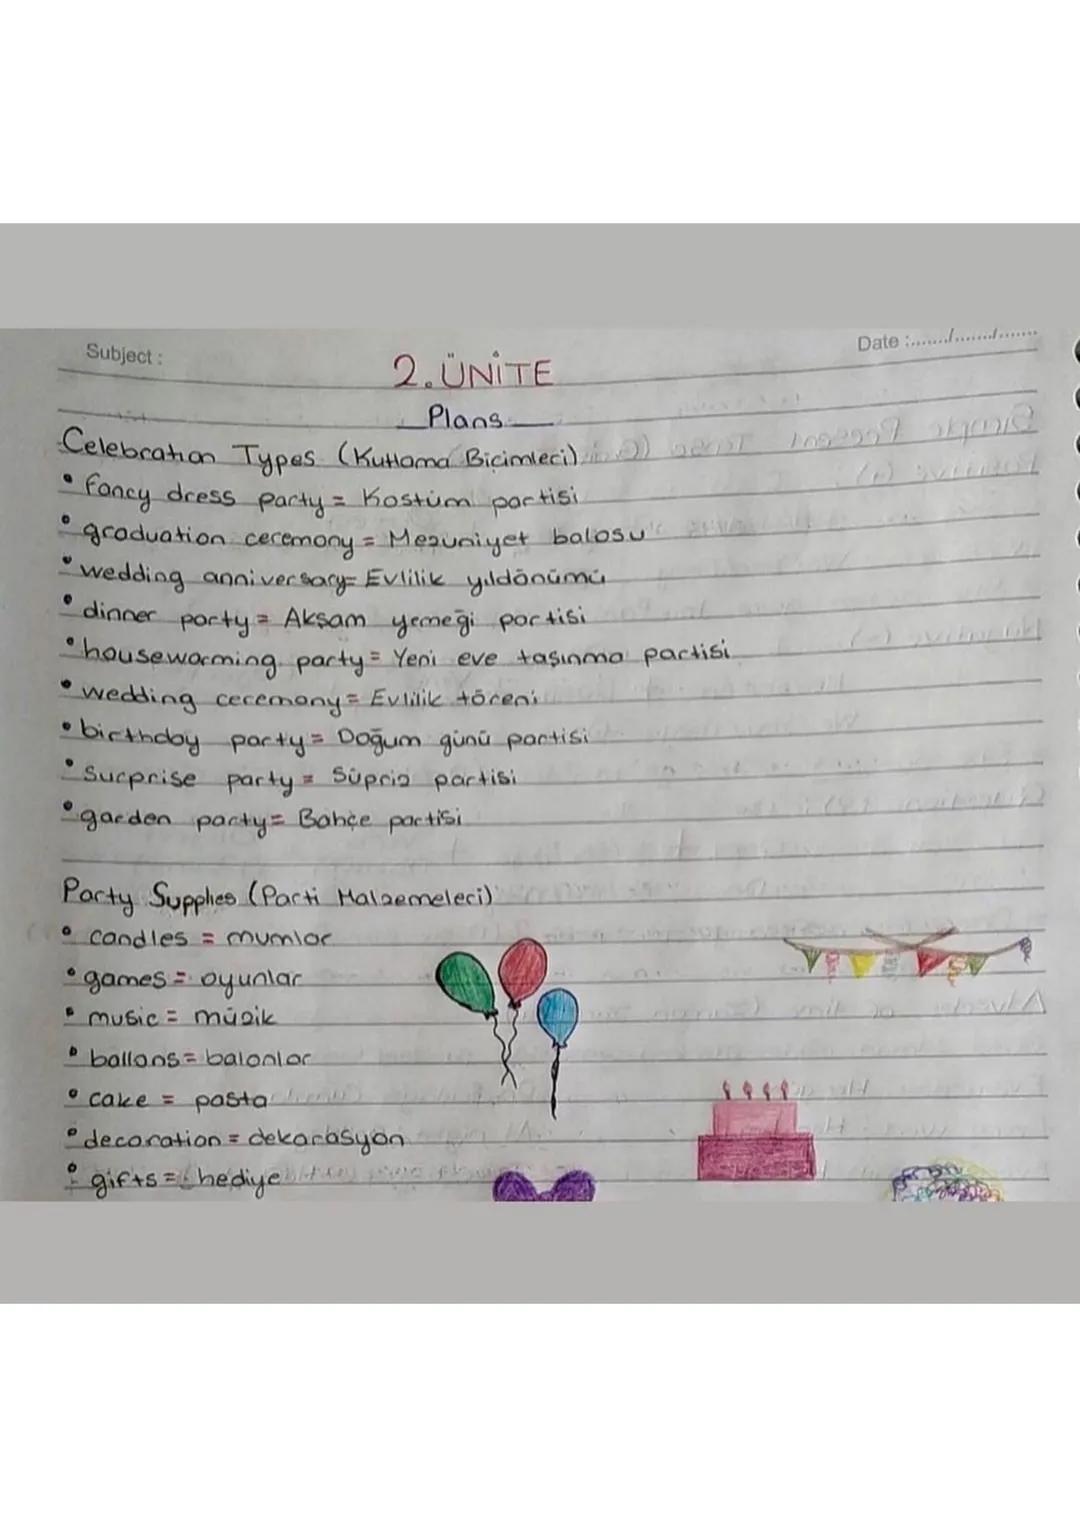 Subject :
Date :......./......./.......
2.ÜNİTE
Plans
Celebration Types (Kutlama Biçimleri)
• fancy dress party = Kostüm partisi
• graduation ceremony = Mezuniyet balosu
• wedding anniversary= Evlilik yıldönümü
• dinner party = Akşam yemeği partisi
• housewarming party = Yeni eve taşınma partisi
• wedding ceremony = Evlilik töreni
• birthday party = Doğum günü partisi
• Surprise party = Süpriz partisi
• garden party = Bahçe partisi
Party Supplies (Parti Malzemeleri)
• candles = mumlar
• games = oyunlar
• music = müzik
• ballons = balonlar
• cake = pasta
• decoration = dekorasyon
• gifts = hediye